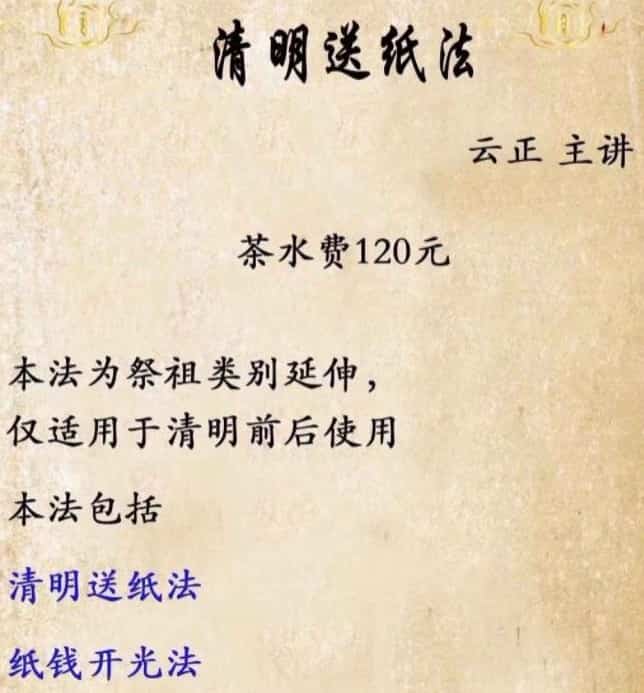 清明送纸法
云正 主讲
茶水费120元
本法为祭祖类别延伸，
仅适用于清明前后使用
本法包括
清明送纸法
纸钱开光法